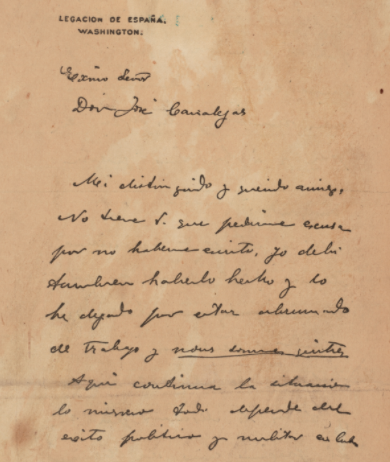 LEGACION DE ESPAÑA.
WASHINGTON.
Eximo Señor
Don José Canalejas
Mi distinguido y querido amigo,
No tiene V. que pedirme excusa
por no haberme escrito, yo debi
tambien haberlo hecho y lo
he dejado por estar abrumado
de trabajo y nous sommes quittes
Aqui continua la situacion
lo mismo todo depende del
exito politico y militar en Cuba